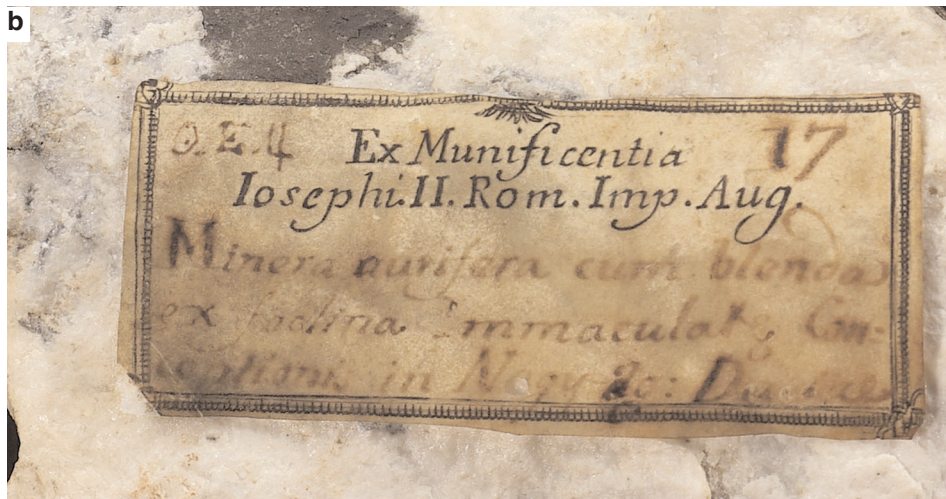 b
Q.E.4 Ex Munificentia 17
Iosephi.II. Rom. Imp. Aug.
Minera aurifera cum blenda
ex fodina Immaculatæ Con-
ceptionis in Nagy-ag: